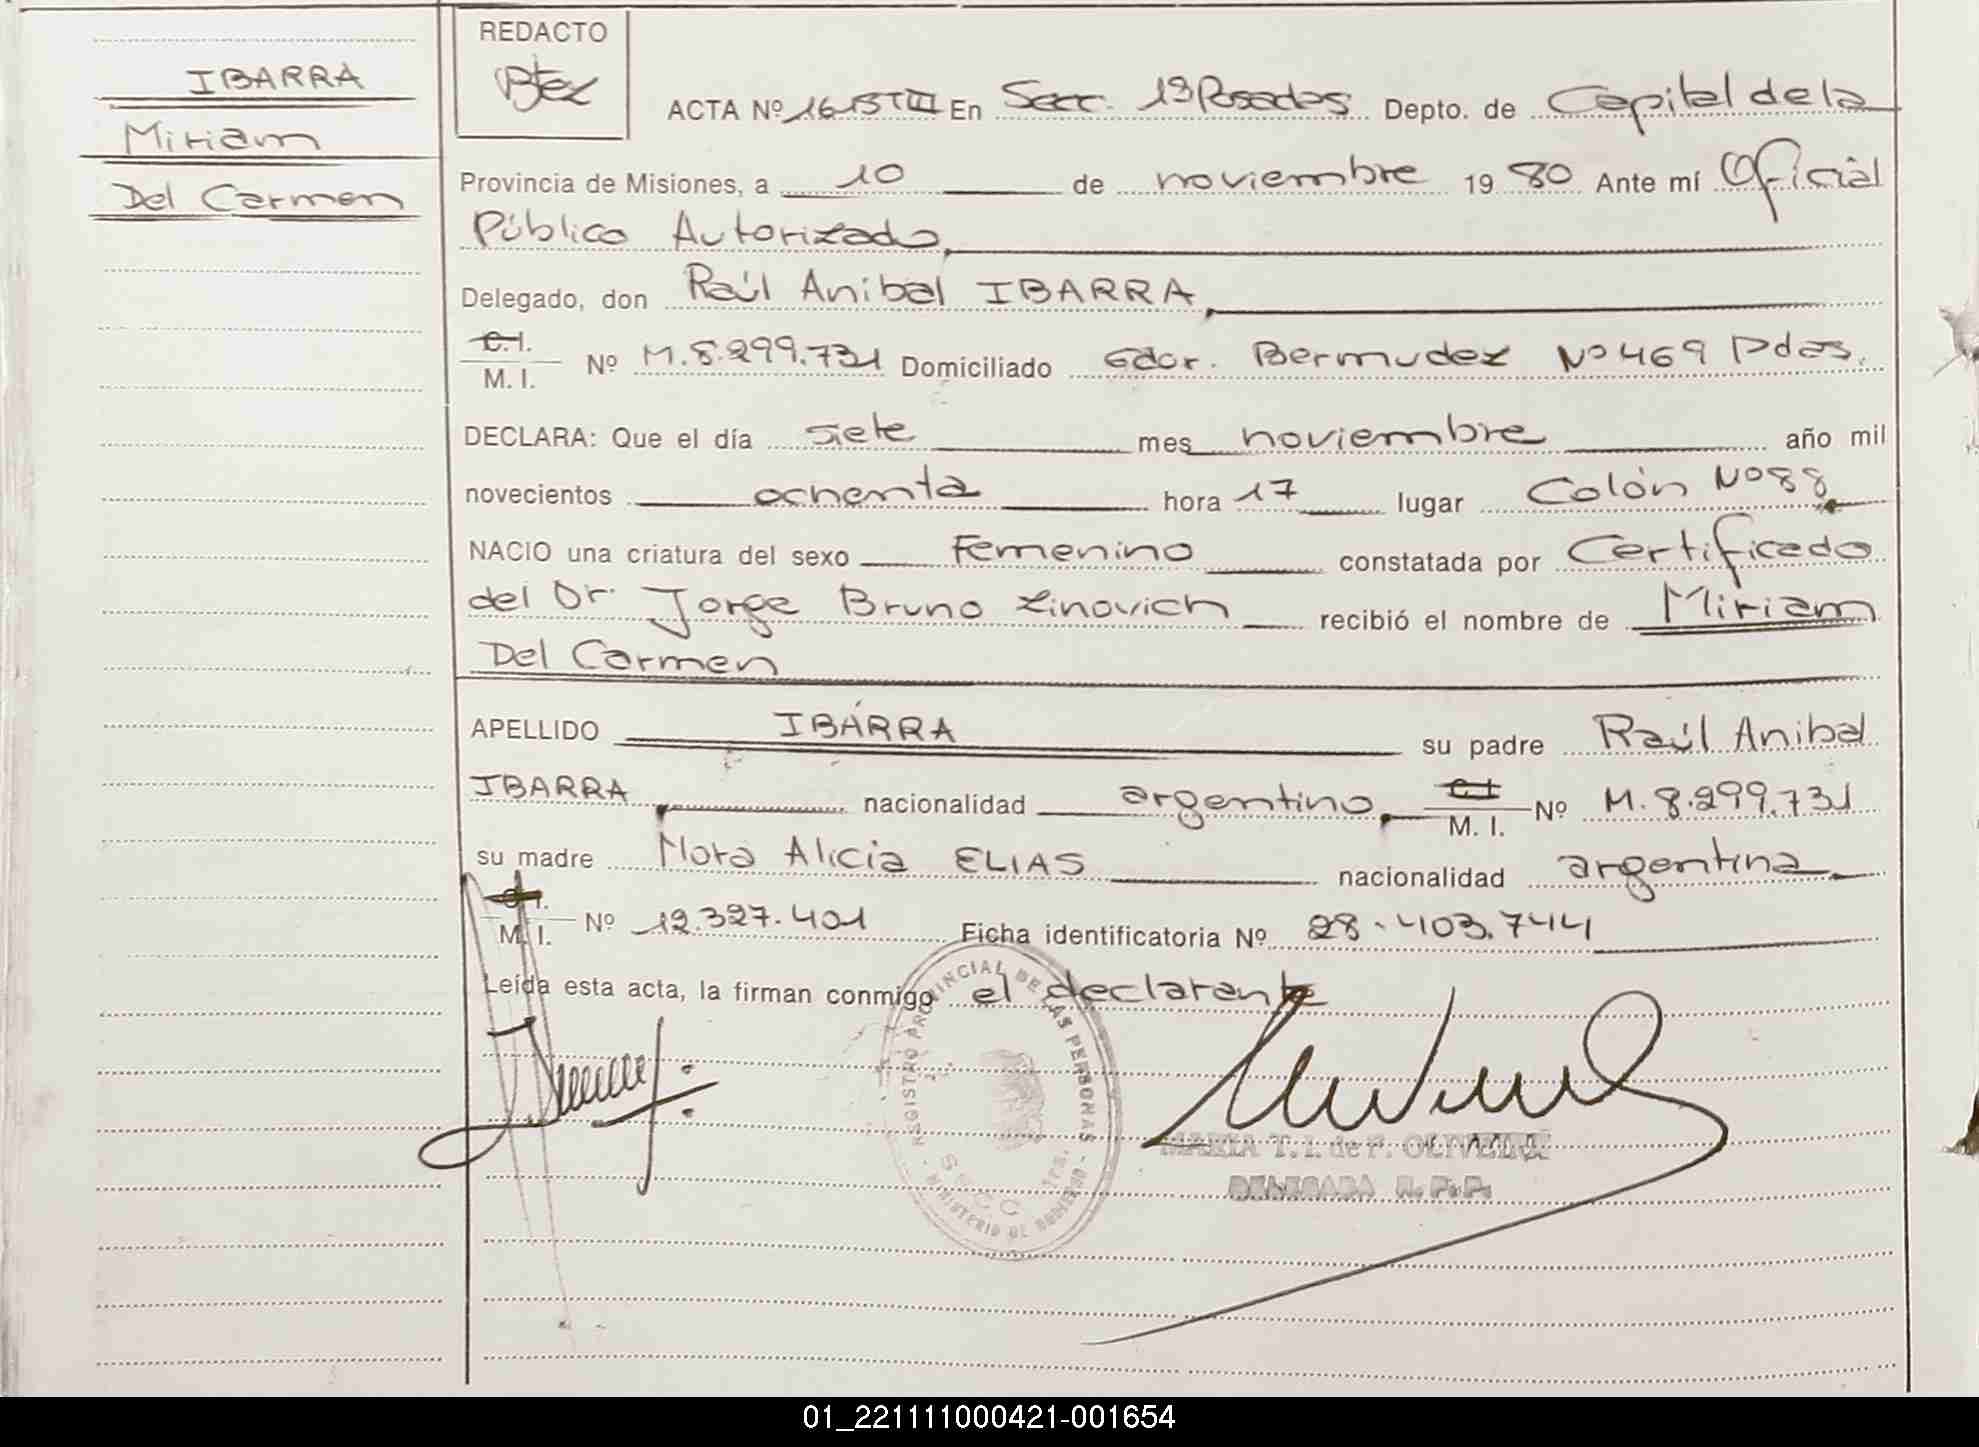 IBARRA
Miriam
Del Carmen
REDACTO
ACTA Nº 1615 TIII En Secc. 1ª Posadas Depto. de Capital de la
Provincia de Misiones, a 10 de noviembre 1980 Ante mí Oficial
Público Autorizado,
Delegado, don Raúl Anibal IBARRA,
C.I.
M. I. Nº M.8.299.731 Domiciliado Gdor. Bermudez Nº 469 Pdas.
DECLARA: Que el día siete mes noviembre año mil
novecientos ochenta hora 17 lugar Colón Nº 88
NACIO una criatura del sexo Femenino constatada por Certificado
del Dr. Jorge Bruno Zinovich recibió el nombre de Miriam
Del Carmen
APELLIDO IBARRA su padre Raúl Anibal
IBARRA, nacionalidad argentino, C.I.
M. I. Nº M.8.299.731
su madre Nora Alicia ELIAS nacionalidad argentina
C.I.
M. I. Nº 12.327.401 Ficha identificatoria Nº 28.403.744
Leída esta acta, la firman conmigo el declarante
REGISTRO PROVINCIAL DE LAS PERSONAS
MINISTERIO DE GOBIERNO
MARIA T. I. de F. OLIVEIRA
DELEGADA R. P. P.
01_221111000421-001654